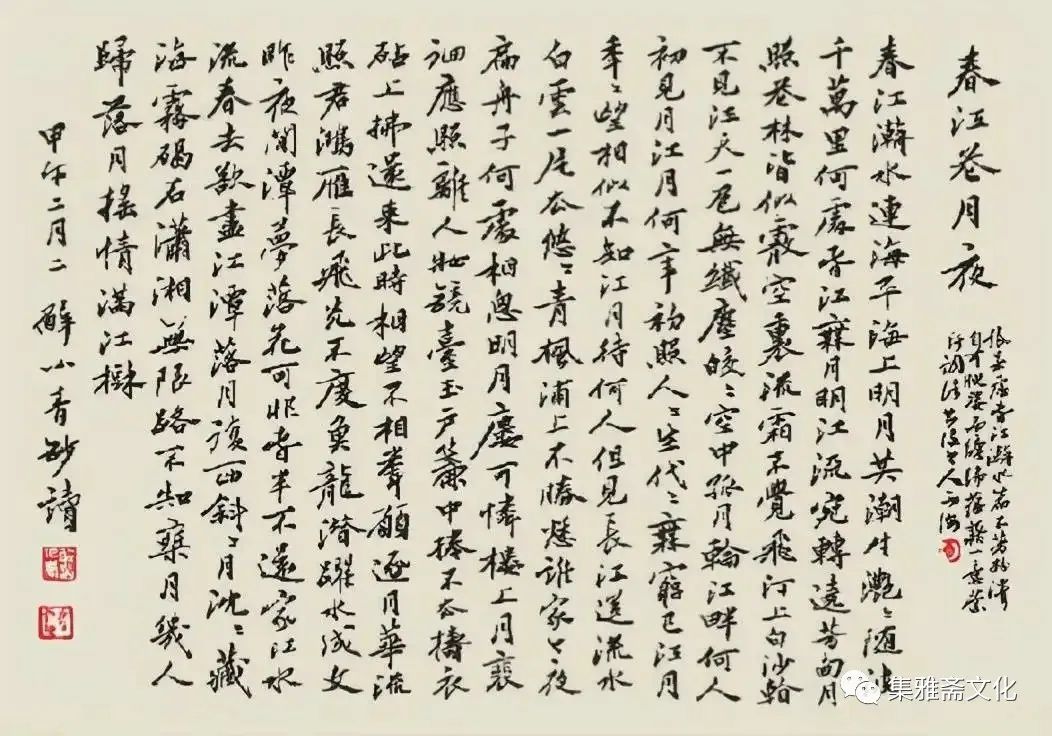 春江花月夜
春江潮水連海平海上明月共潮生灩〻随波
千萬里何處春江無月明江流宛轉遶芳甸月
照花林皆似霰空裏流霜不覺飛汀上白沙看
不見江天一色無纖塵皎〻空中孤月輪江畔何人
初見月江月何年初照人〻生代〻無窮已江月
年〻望相似不知江月待何人但見長江送流水
白雲一片去悠〻青楓浦上不勝愁誰家今夜
扁舟子何處相思明月廔可憐楼上月裵
徊應照離人妝鏡臺玉戶簾中捲不去擣衣
砧上拂還来此時相望不相聞願逐月華流
照君鴻雁長飛光不度魚龍潜躍水成文
昨夜閒潭夢落花可憐春半不還家江水
流春去欲盡江潭落月復西斜〻月沈〻藏
海霧碣石瀟湘無限路不知乗月幾人
歸落月摇情滿江樹
甲午二月二 解小青抄讀
集雅斋文化